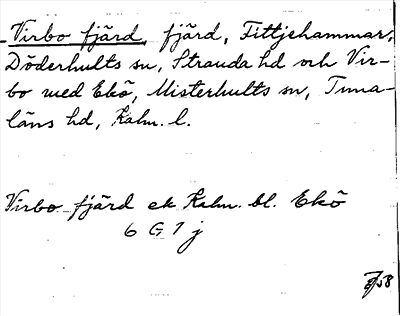 Virbo fjärd, fjärd, Fittjehammar,
Döderhults sn, Stranda hd och Vir-
bo med Ekö, Misterhults sn, Tuna-
läns hd, Kalm. l.
Virbo fjärd ek Kalm. bl. Ekö
6 G 7 j
58